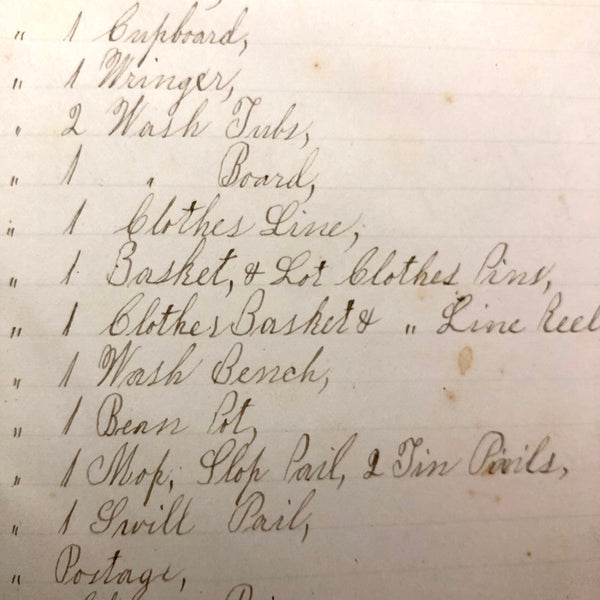 " 1 Cupboard,
" 1 Wringer,
" 2 Wash Tubs,
" 1 " Board,
" 1 Clothes Line,
" 1 Basket, & Lot Clothes Pins,
" 1 Clothes Basket & " Line Reel
" 1 Wash Bench,
" 1 Bean Pot,
" 1 Mop, Slop Pail, 2 Tin Pails,
" 1 Swill Pail,
" Postage,